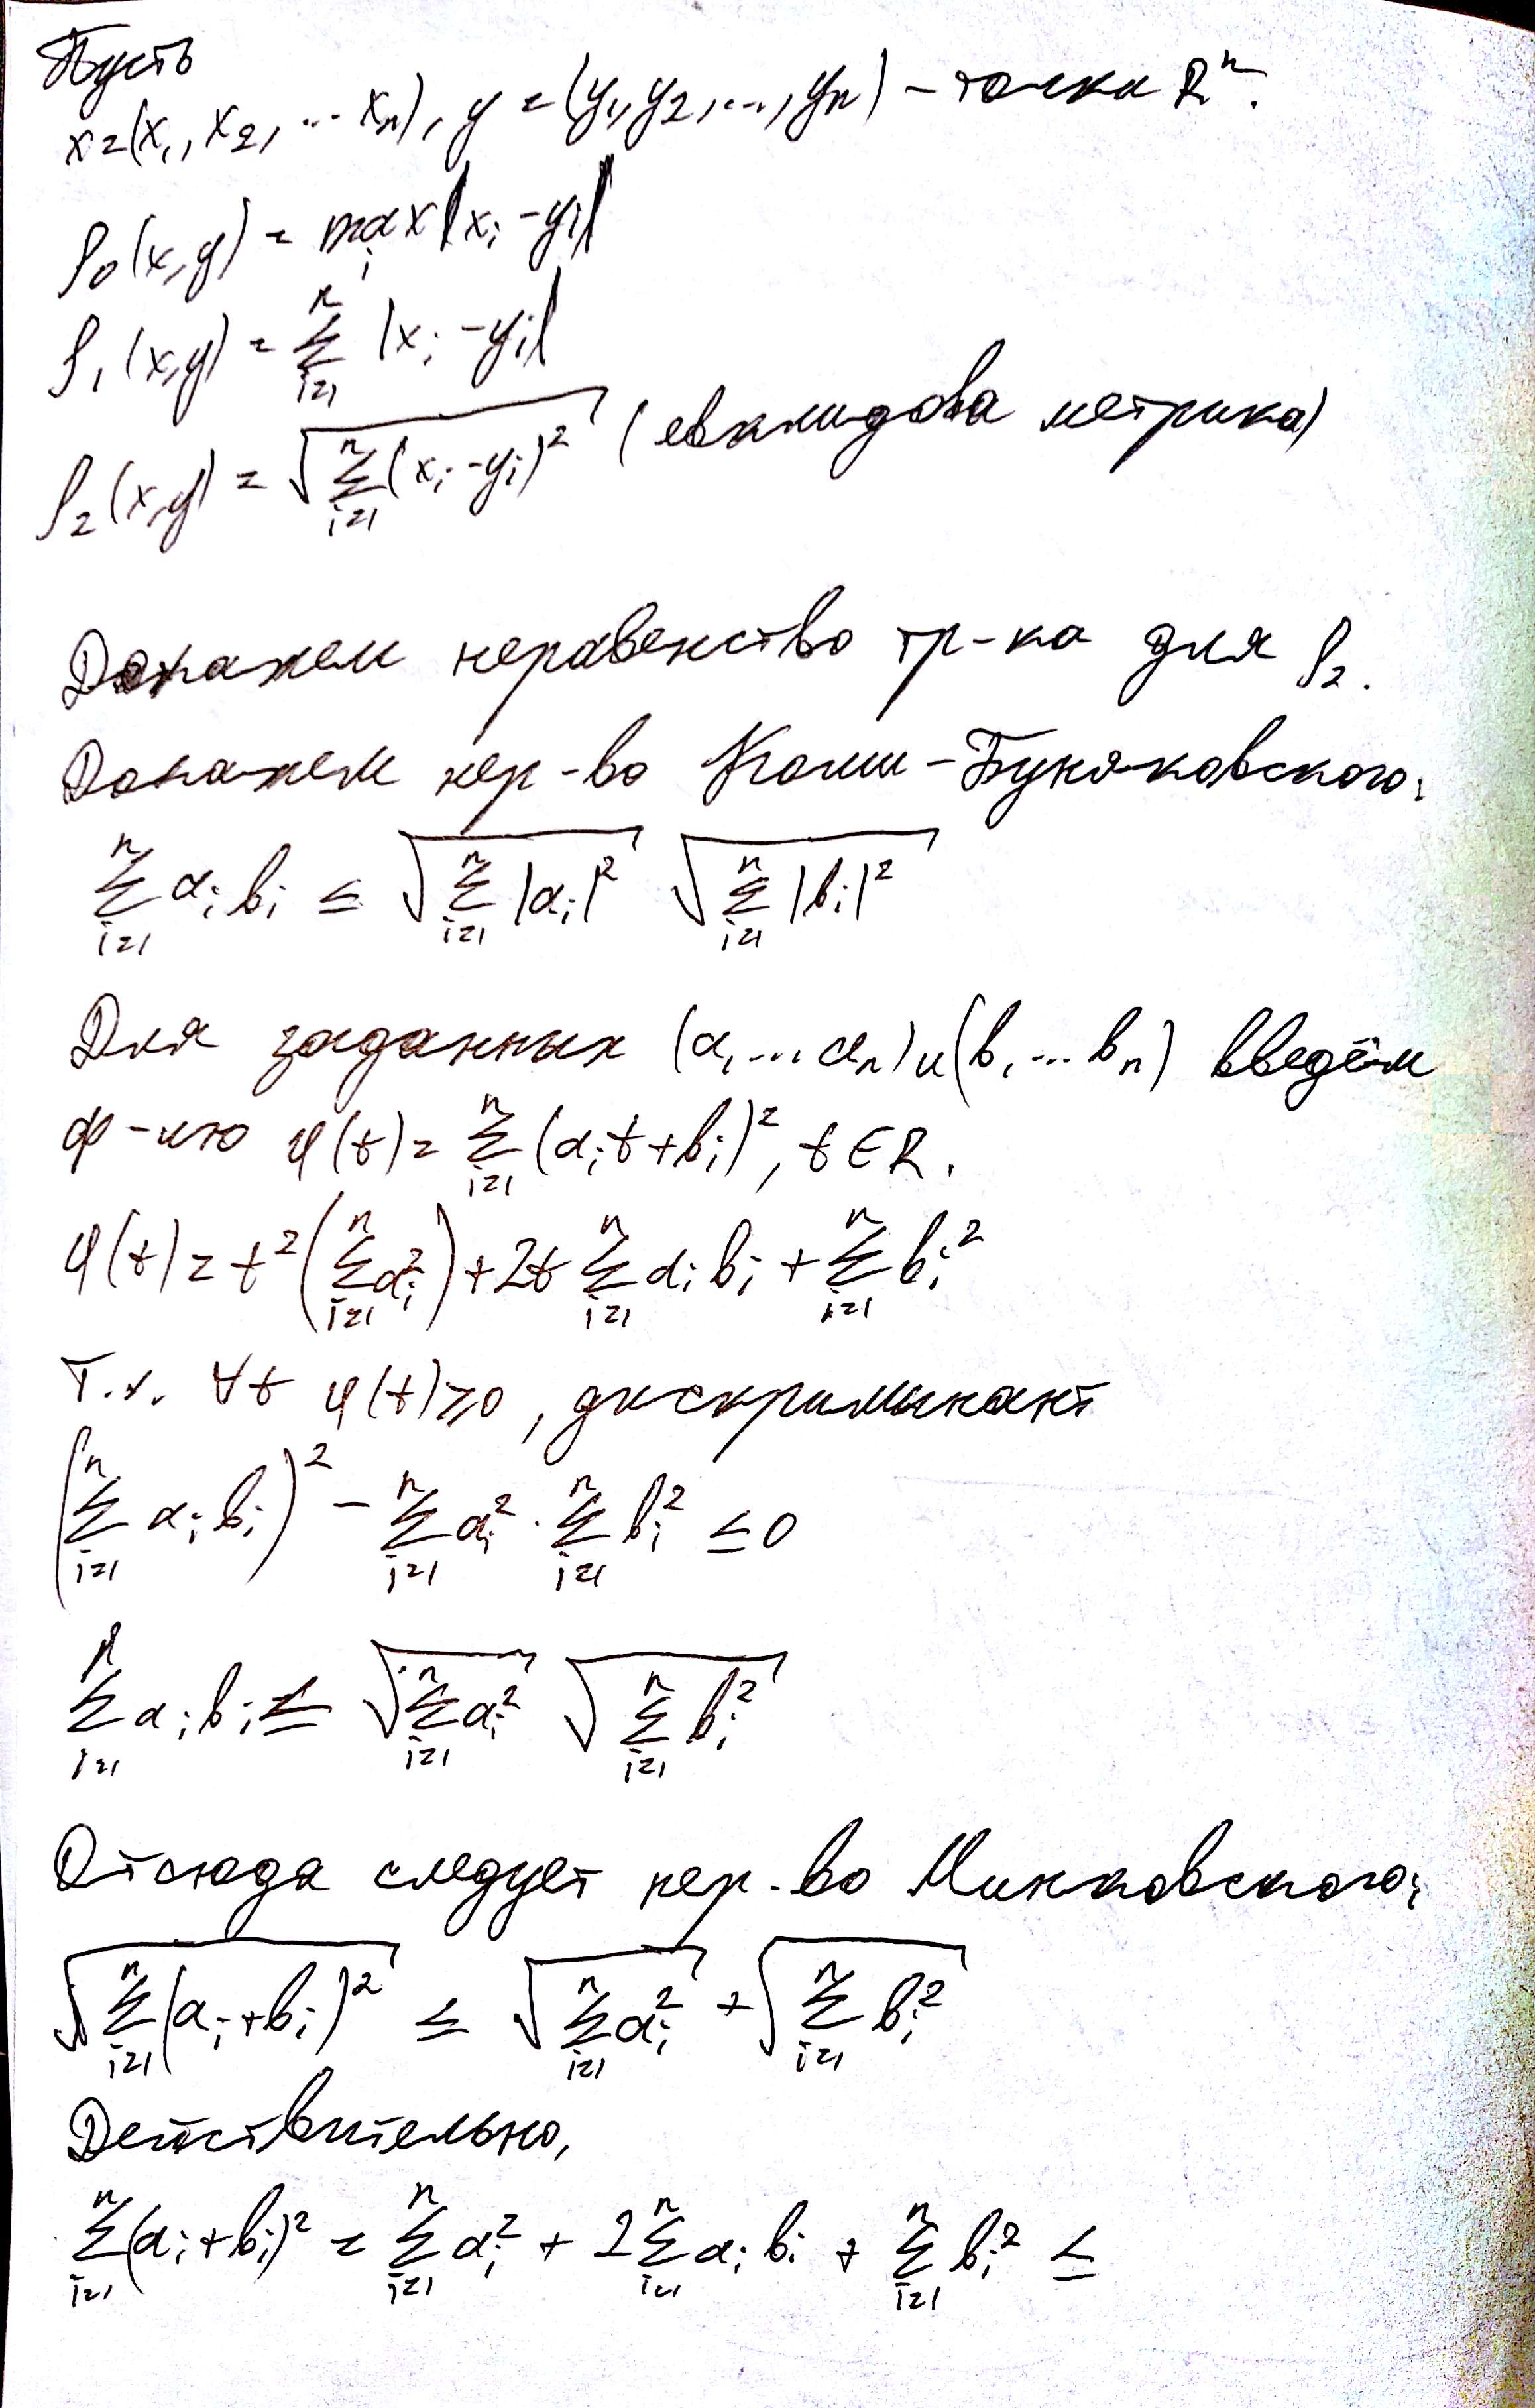 Пусть
x=(x₁, x₂, ... xₙ), y = (y₁, y₂, ..., yₙ) – точки Rⁿ.
ρ₀(x,y) = max_i |x_i - y_i|
ρ₁(x,y) = ∑_{i=1}^n |x_i - y_i|
ρ₂(x,y) = √(∑_{i=1}^n (x_i - y_i)²) (евклидова метрика)
Докажем неравенство тр-ка для ρ₂.
Докажем нер-во Коши-Буняковского:
∑_{i=1}^n a_i b_i ≤ √(∑_{i=1}^n |a_i|²) √(∑_{i=1}^n |b_i|²)
Для заданных (a₁ ... aₙ) и (b₁ ... bₙ) введём
ф-ию φ(t) = ∑_{i=1}^n (a_i t + b_i)², t ∈ R.
φ(t) = t² (∑_{i=1}^n a_i²) + 2t ∑_{i=1}^n a_i b_i + ∑_{i=1}^n b_i²
Т.к. ∀t φ(t) ≥ 0, дискриминант
(∑_{i=1}^n a_i b_i)² - ∑_{i=1}^n a_i² · ∑_{i=1}^n b_i² ≤ 0
∑_{i=1}^n a_i b_i ≤ √(∑_{i=1}^n a_i²) √(∑_{i=1}^n b_i²)
Отсюда следует нер-во Минковского:
√(∑_{i=1}^n (a_i + b_i)²) ≤ √(∑_{i=1}^n a_i²) + √(∑_{i=1}^n b_i²)
Действительно,
∑_{i=1}^n (a_i + b_i)² = ∑_{i=1}^n a_i² + 2∑_{i=1}^n a_i b_i + ∑_{i=1}^n b_i² ≤